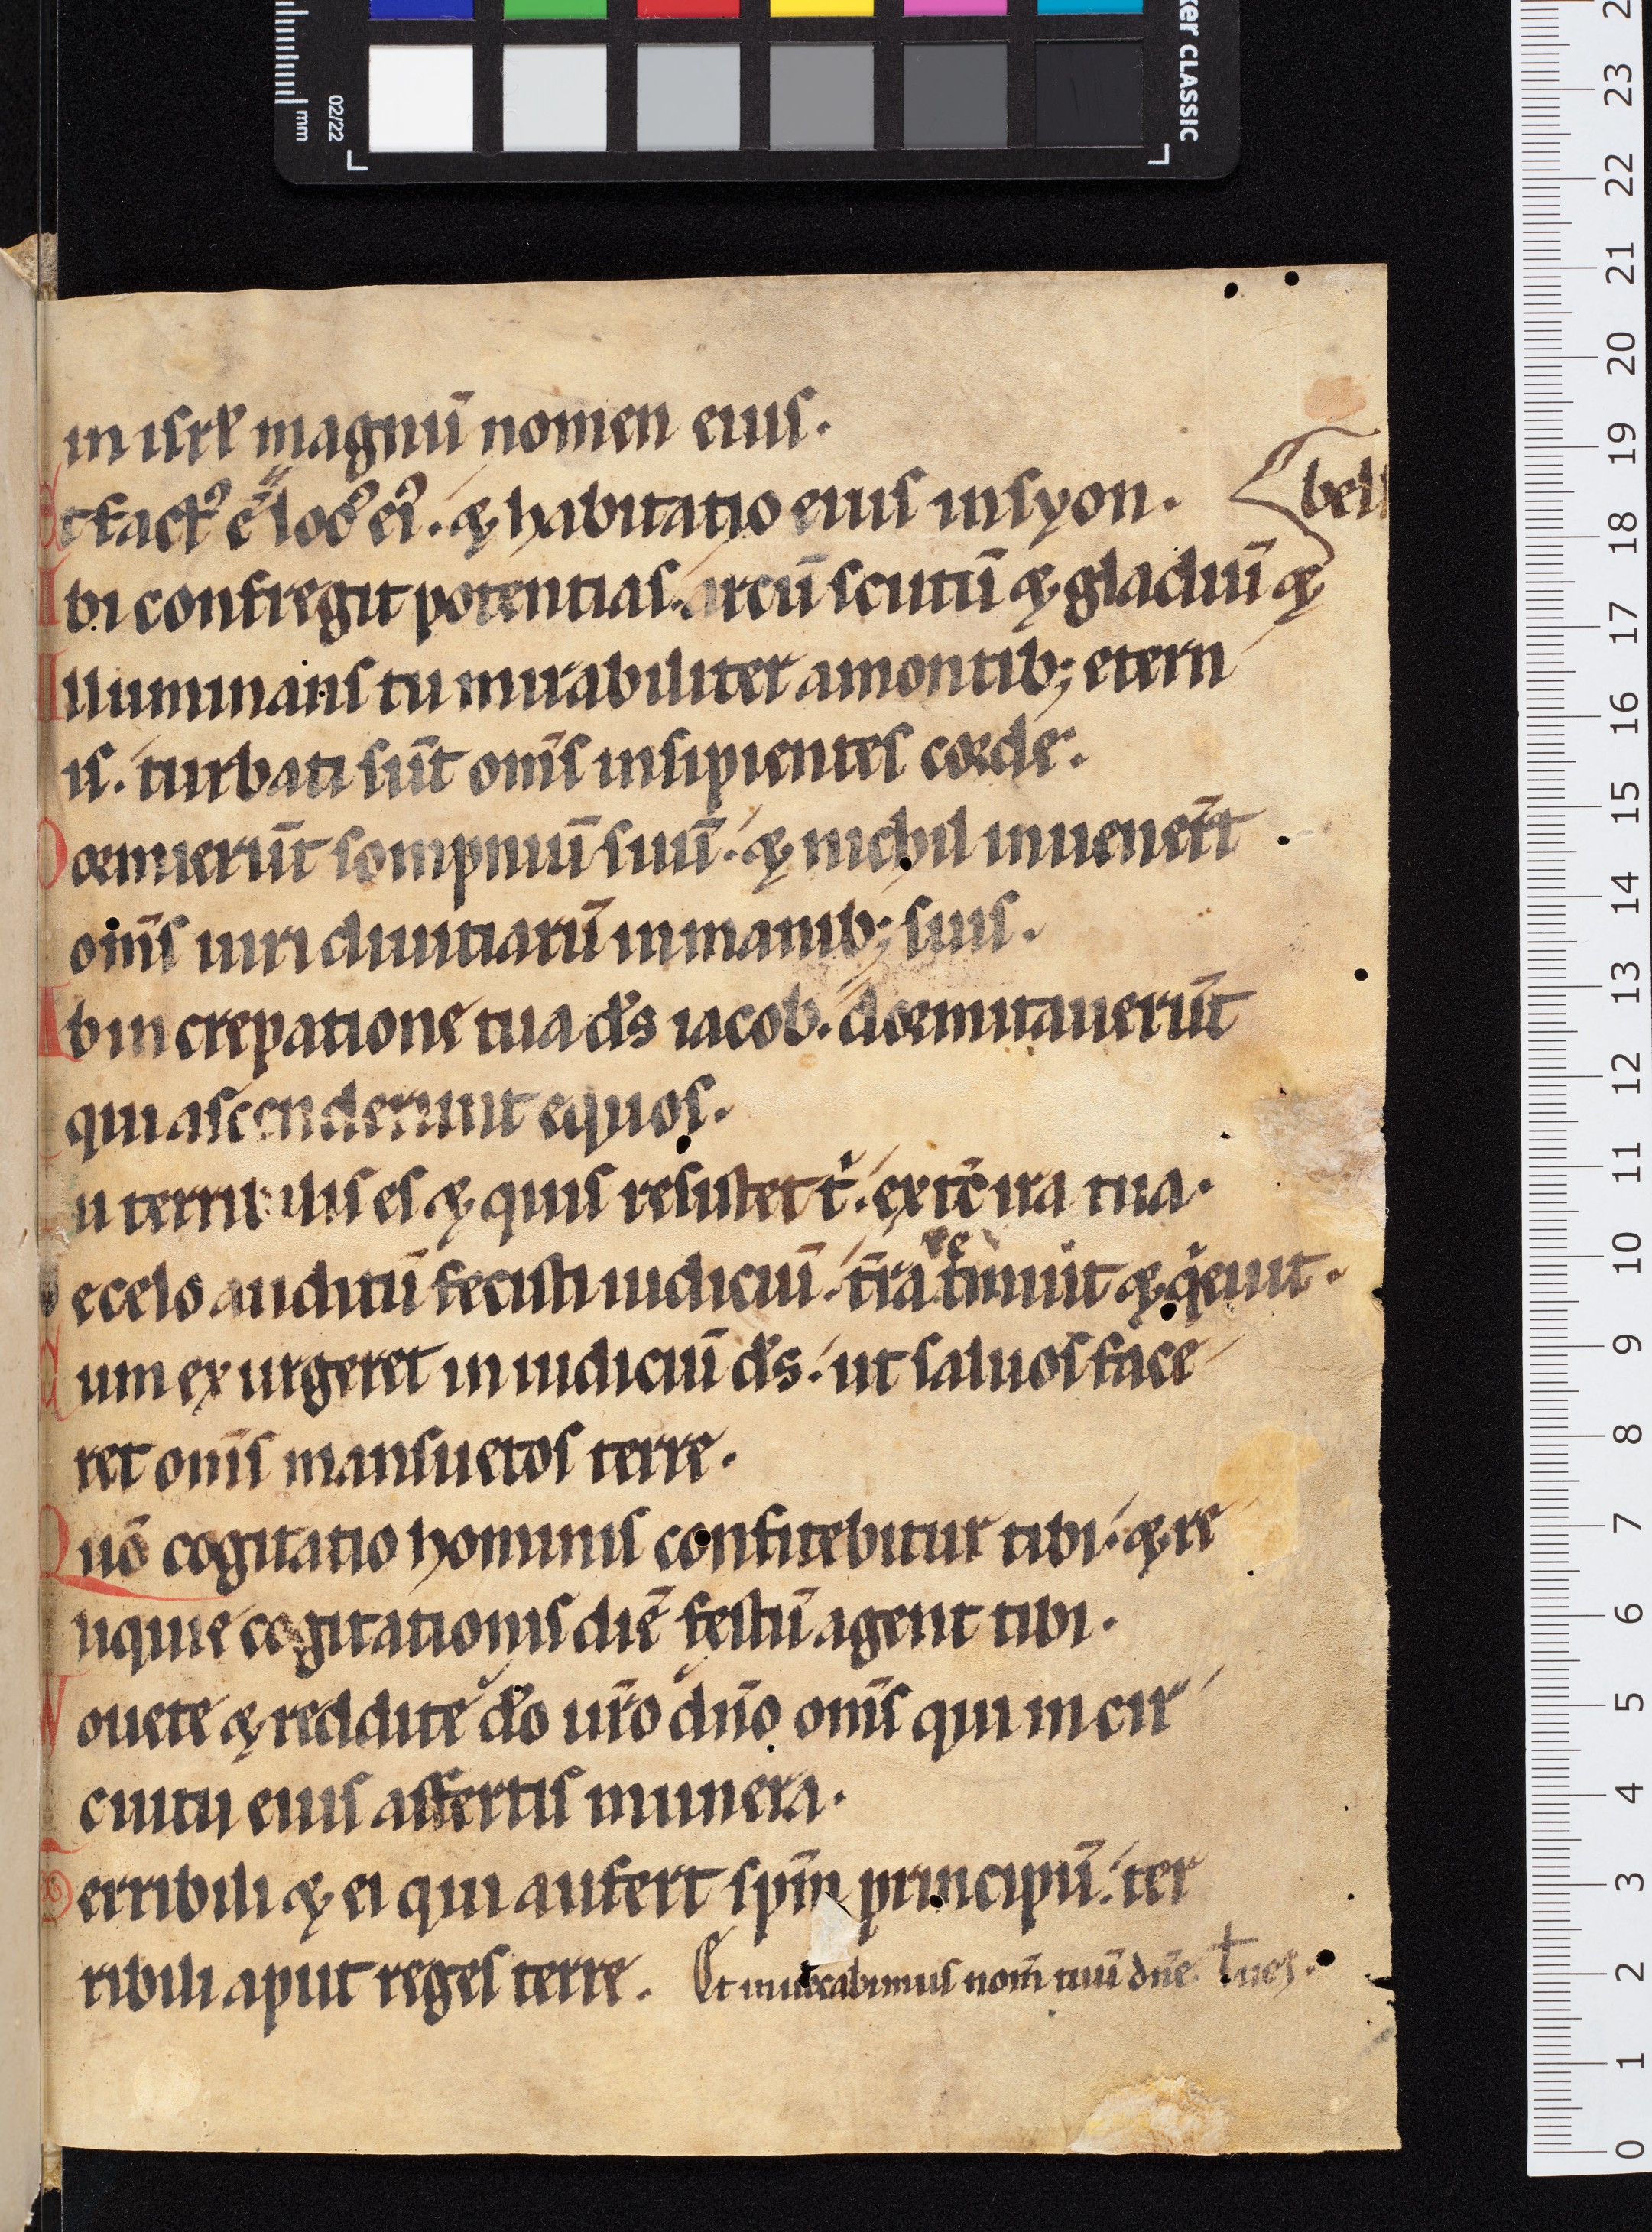 in isrł magnū nomen eius.
Et fact᷒ ē i loc᷒ ei᷒. ⁊ habitatio eius in syon.
Ibi confregit potentias. arcū scutū ⁊ gladiū ⁊
bell
Illuminans tu mirabiliter a montib; etern
is. turbati sūt om̄s insipientes corde.
Dormierūt sompniū suū. ⁊ nichil inuenert̄
om̄s uiri diuitiarū in manib; suis.
Ab increpatione tua ds̄ iacob. dormitauerūt
qui ascenderunt equos.
u terribilis es ⁊ quis resistet t̾. ex tē ira tua.
e celo auditū fecisti iudiciū. tr̄a tremuit ⁊ q̾euit.
Cum exurgeret in iudiciū ds̄. ut saluos face
ret om̄s mansuetos terre.
Quō cogitatio hominis confitebitur tibi. ⁊ re
liquie cogitationis diē festū agent tibi.
Vouete ⁊ reddite do̅ ur̄o dn̄o om̄s qui in cir
cuitu eius affertis munera.
Terribili ⁊ ei qui aufert spm̄ principū. ter
ribili aput reges terre. Et inuocabimus nom̄ tuū dn̄e.
02/22
mm
CLASSIC
23
22
21
20
19
18
17
16
15
14
13
12
11
10
9
8
7
6
5
4
3
2
1
0